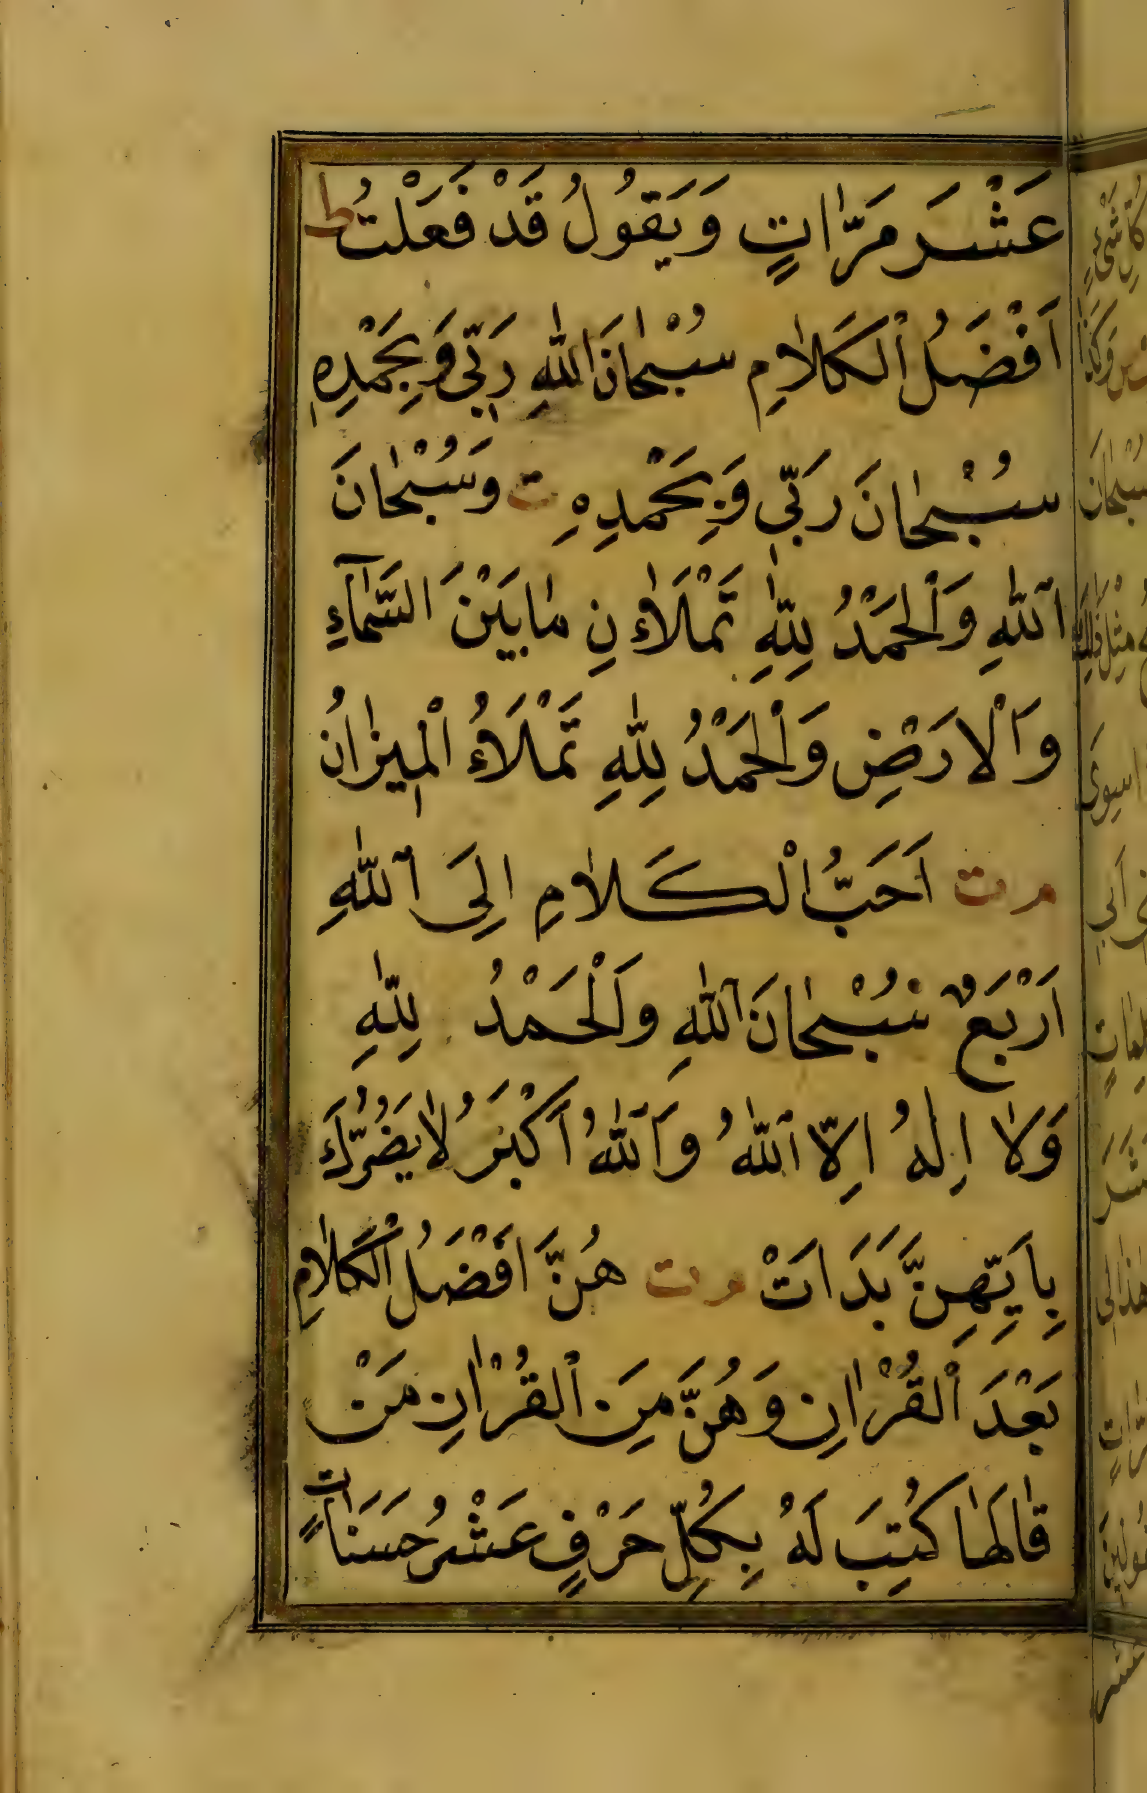 عَشْرَ مَرَّاتٍ وَيَقُولُ قَدْ فَعَلْتُ ط
اَفْضَلُ الْكَلَامِ سُبْحَانَ اللّٰهِ رَبّى وَبِحَمْدِهِ
سُبْحَانَ رَبّى وَبِحَمْدِهِ ت وَسُبْحَانَ
اللّٰهِ وَالْحَمْدُ لِلّٰهِ تَمْلَاٰءنِ مَابَيْنَ السَّمَآءِ
وَالْاَرَضِ وَالْحَمْدُ لِلّٰهِ تَمْلَاُء الْمِيزَانُ
مرت اَحَبُّ الْكَلَامِ اِلَى اللّٰهِ
اَرْبَعٌ سُبْحَانَ اللّٰهِ وَالْحَمْدُ لِلّٰهِ
وَلَا اِلٰهُ اِلَّا اللّٰهُ وَاللّٰهُ اَكْبَرُ لَايَضُرُّكَ
بِاَيِّهِنَّ بَدَاَتْ مرت هُنَّ اَفْضَلُ الْكَلَامِ
بَعْدَ الْقُرْاٰنِ وَهُنَّ مِنَ الْقُرْاٰنِ مَنْ
قَالَهَا كُتِبَ لَهُ بِكُلِّ حَرْفٍ عَشْرُ حَسَنَاتٍ